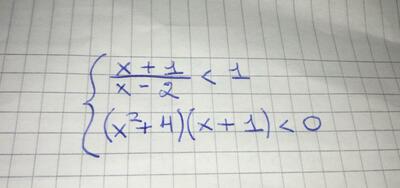 { (x + 1)/(x - 2) < 1
(x² + 4)(x + 1) < 0